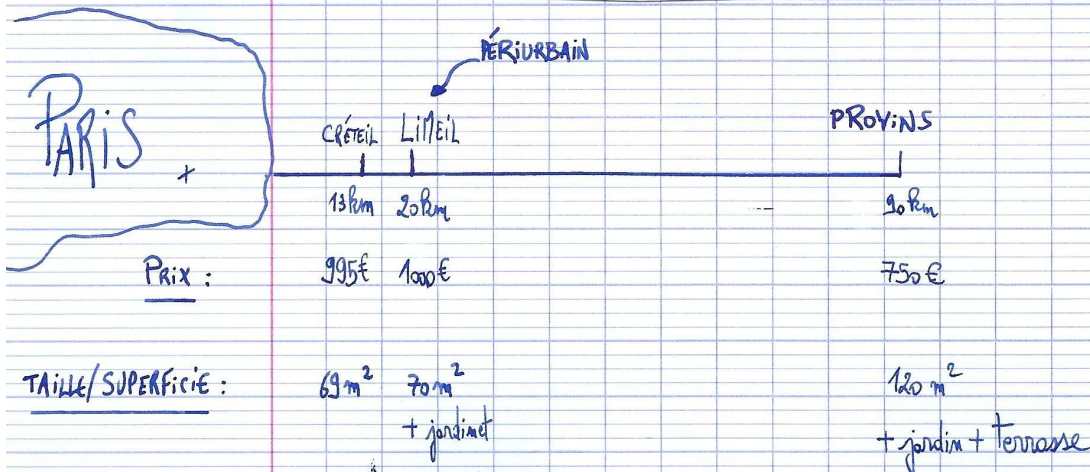 PÉRIURBAIN
PARIS +
CRÉTEIL LIMEIL PROVINS
13km 20km 90km
PRIX : 995€ 1000€ 750€
TAILLE/SUPERFICIE : 69 m² 70 m² 120 m²
+ jardinet + jardin + terrasse